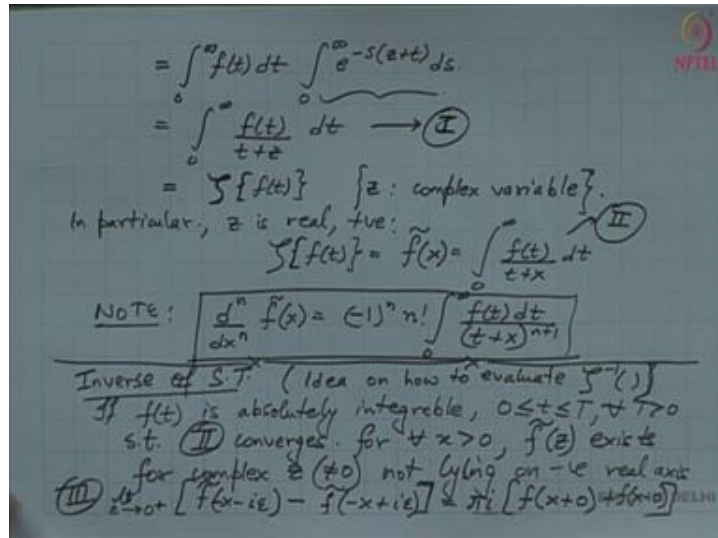 = ∫₀^∞ f(t) dt ∫₀^∞ e^{-s(z+t)} ds
NPTEL
= ∫₀^∞ f(t)/(t+z) dt ⟶ (I)
= ζ{f(t)} {z : complex variable}.
In particular, z is real, +ve: (II)
ζ[f(t)] = f̃(x) = ∫₀^∞ f(t)/(t+x) dt
NOTE: d^n/dx^n f̃(x) = (-1)^n n! ∫₀^∞ f(t) dt/(t+x)^{n+1}
Inverse of S.T. (Idea on how to evaluate ζ^{-1}())
If f(t) is absolutely integreble, 0≤t≤T, ∀ T>0
s.t. (II) converges for ∀ x>0, f̃(z) exists
for complex z (≠0) not lying on -ve real axis
(III) lt ε→0+ [f̃(-x-iε) - f̃(-x+iε)] = πi [f(x+0)+f(x-0)]